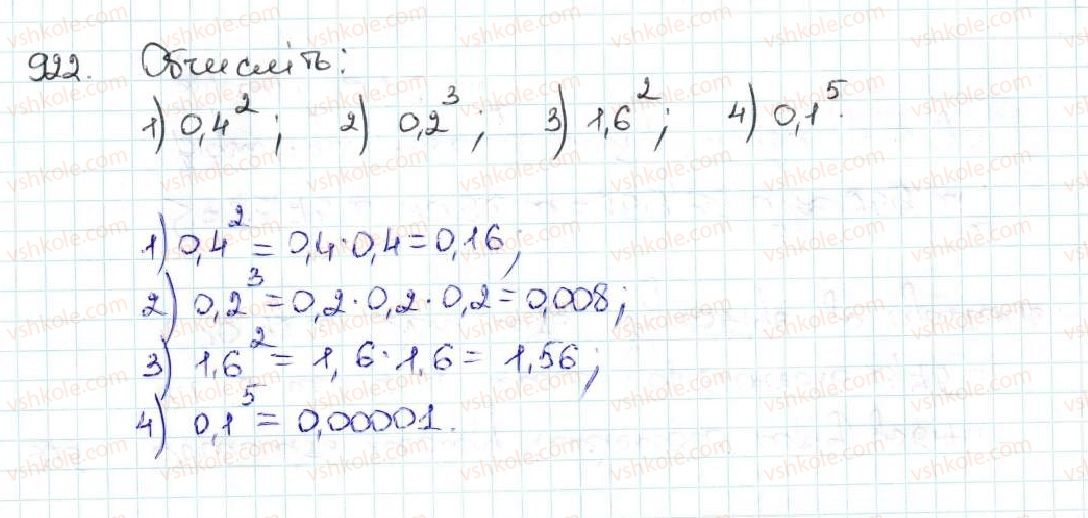 922. Обчисліть:
1) 0,4²; 2) 0,2³; 3) 1,6²; 4) 0,1⁵.
1) 0,4² = 0,4·0,4 = 0,16;
2) 0,2³ = 0,2·0,2·0,2 = 0,008;
3) 1,6² = 1,6·1,6 = 1,56;
4) 0,1⁵ = 0,00001.
vshkole.com